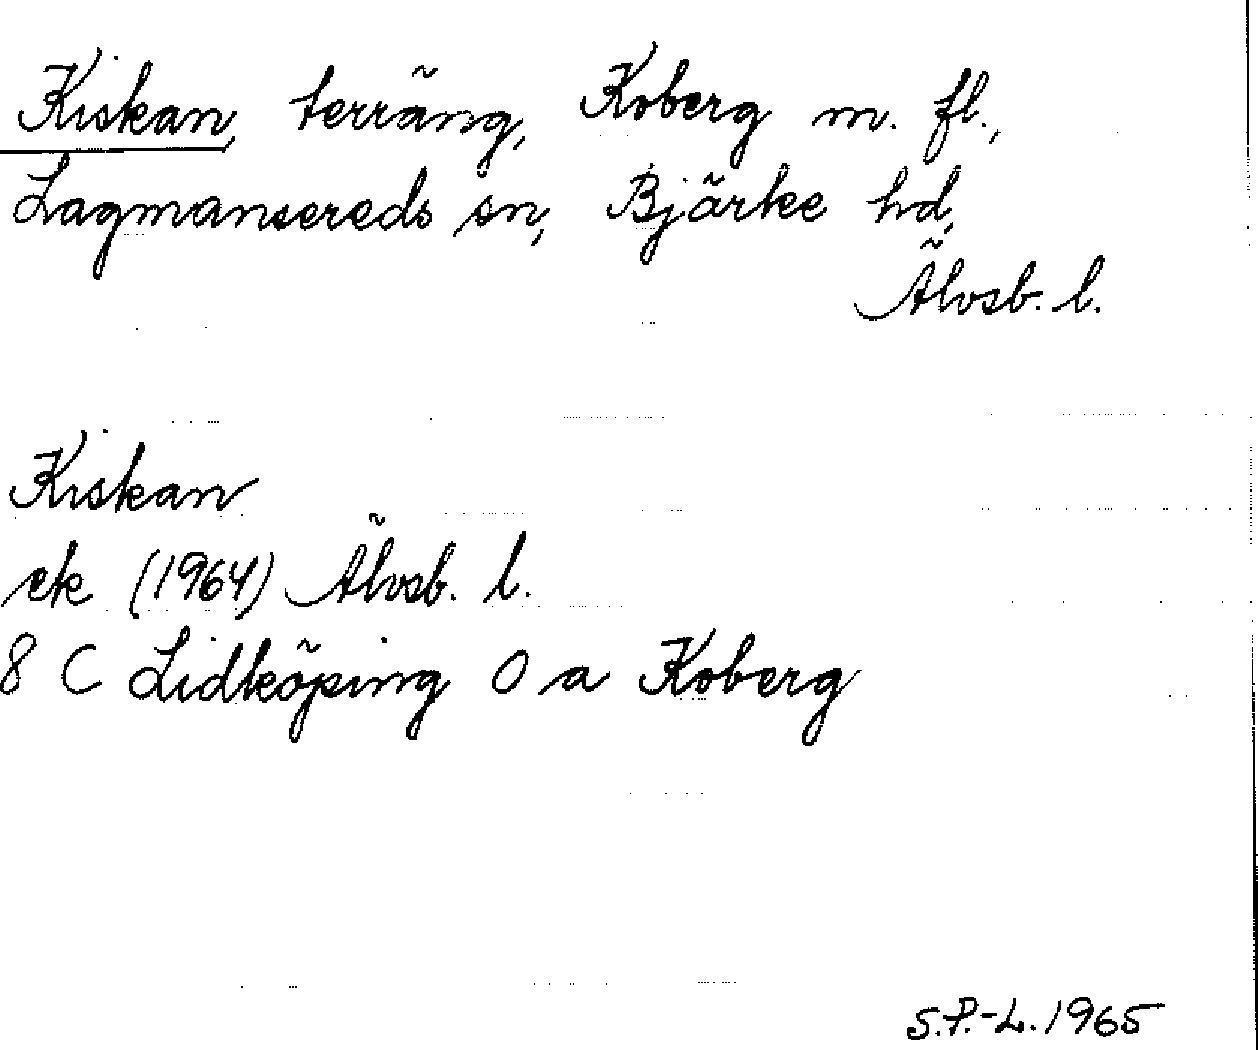 Kiskan, terräng, Koberg m. fl.,
Lagmansereds sn, Bjärke hd,
Älvsb. l.
Kiskan
ek (1964) Älvsb. l.
8 C Lidköping 0 a Koberg
S.P.-L. 1965